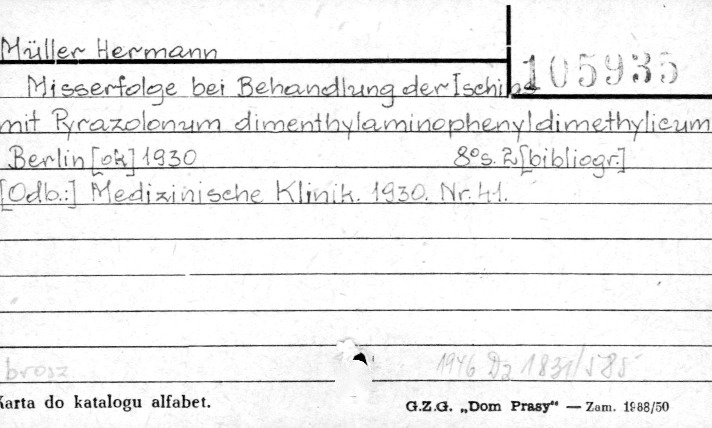 Müller Hermann
105935
Misserfolge bei Behandlung der Ischias
mit Pyrazolonum dimenthylaminophenyldimethylicum
Berlin [ok] 1930 8° s. 2 [bibliogr.]
[Odb.:] Medizinische Klinik. 1930. Nr. 41.
brosz 1946 Dz 1831/585
Karta do katalogu alfabet. G.Z.G. „Dom Prasy" — Zam. 1988/50